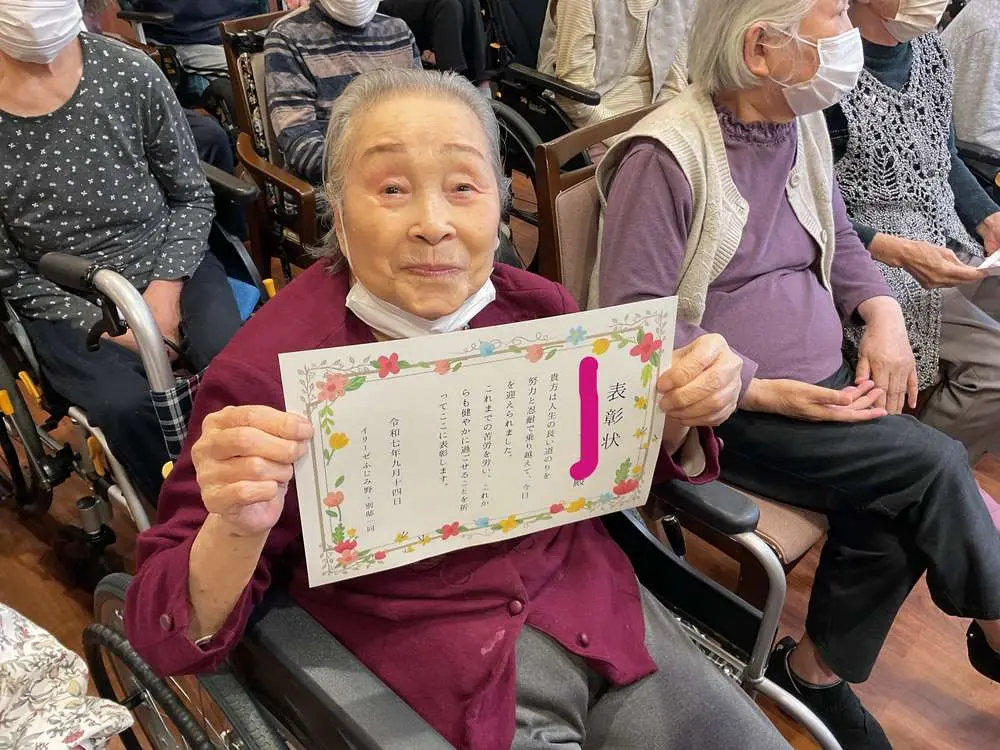 表彰状
殿
貴方は人生の長い道のりを
努力と忍耐で乗り越えて、今日
を迎えられました。
これまでの苦労を労い、これか
らも健やかに過ごせることを祈
ってここに表彰します。
令和七年九月十四日
イリーゼふじみ野・別邸一同